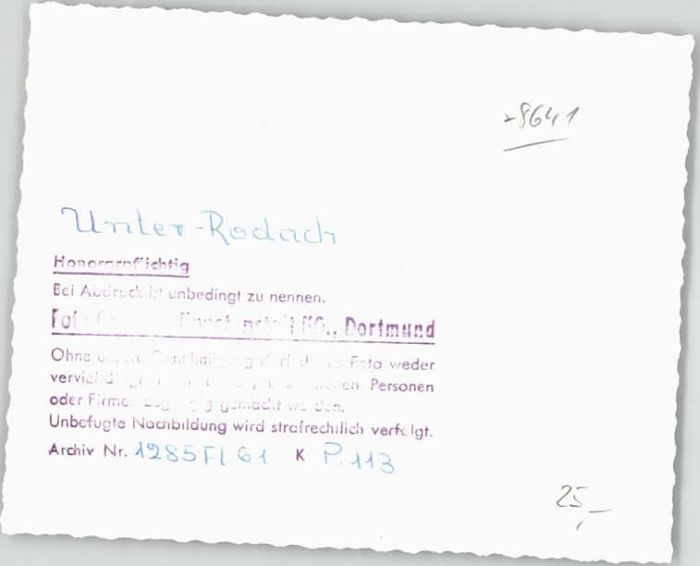 8641
Unter-Rodach
Honorarpflichtig
Bei Abdruck ist unbedingt zu nennen.
Foto KG., Dortmund
Ohne Genehmigung darf dieses Foto weder
Personen
oder Firmen gemacht werden.
Unbefugte Nachbildung wird strafrechtlich verfolgt.
Archiv Nr. 1285 Fl 61 K P. 113
25,-